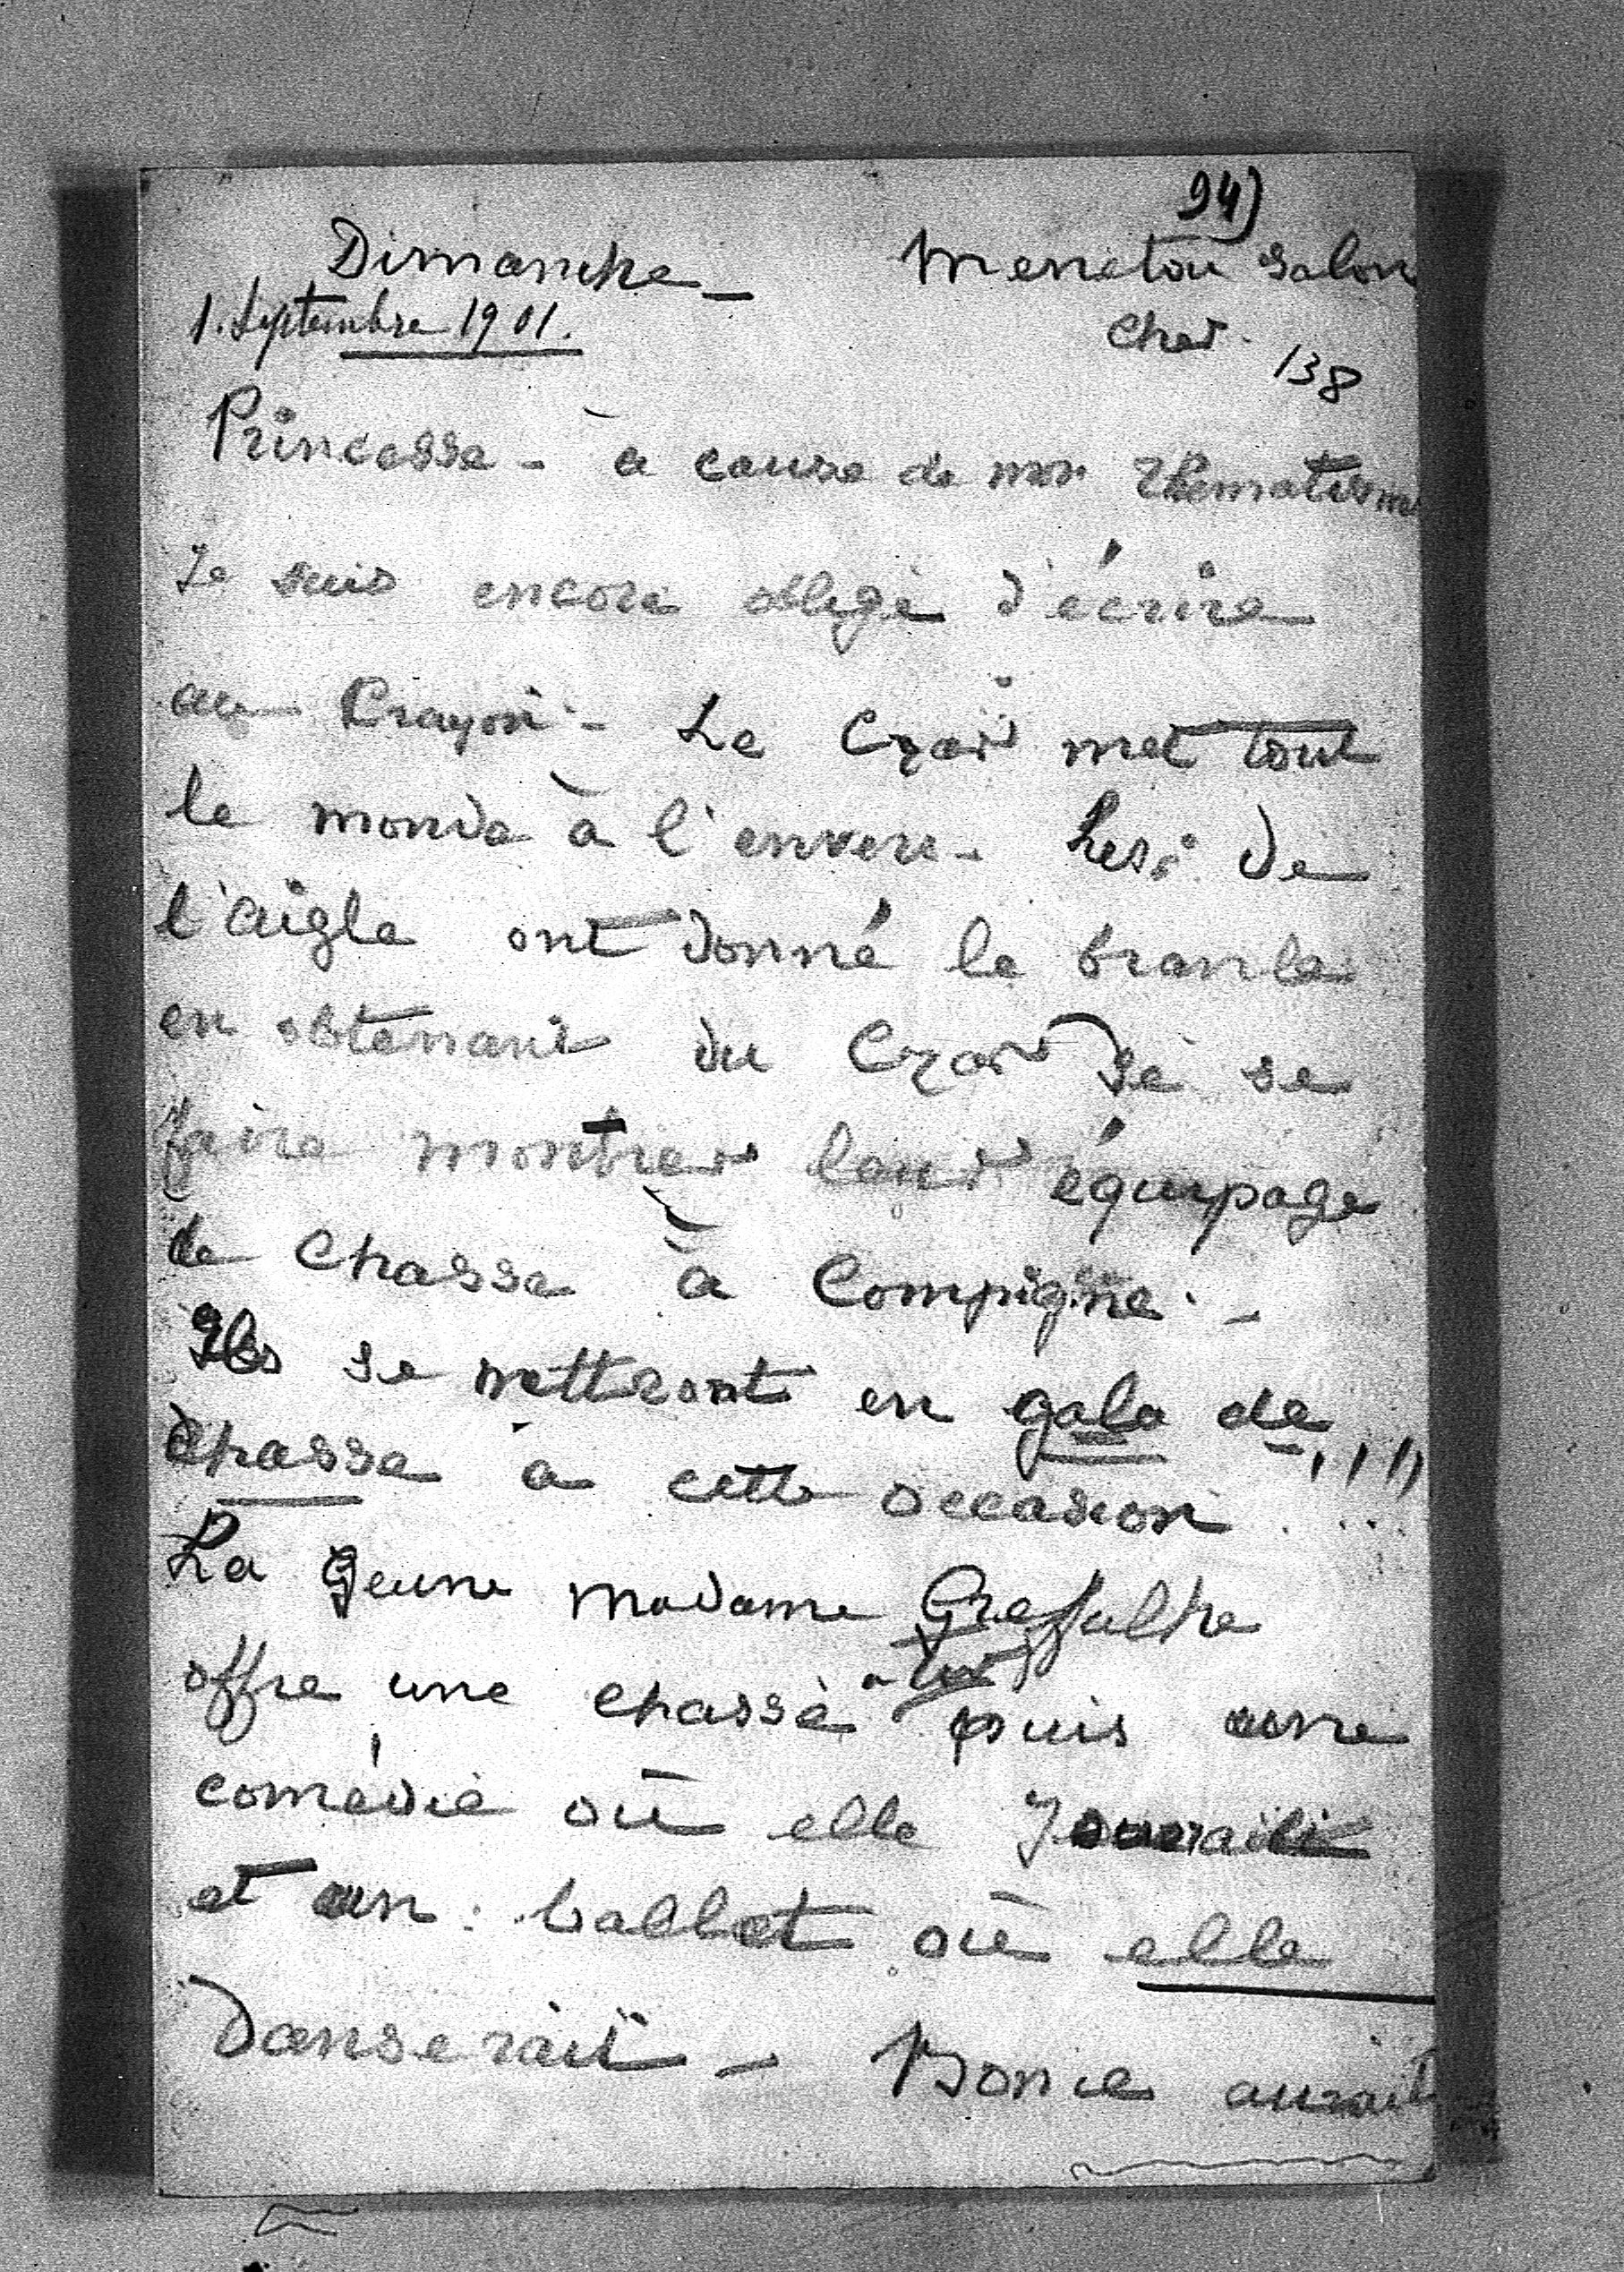 94)
Dimanche - Menetou Salon
1. Septembre 1901. Cher.
138
Princesse - à cause de mon rhematisme
Je suis encore obligé d'écrire
au Crayon - Le Czar met tout
le monde à l'envers - Les de
l'aigle ont donné le branle
en obtenant du Czar de se
faire montrer leur équipage
de chasse à Compigne. -
Ils se mettront en gala de
chasse à cette occasion !!!
La Jeune Madame Greffulhe
offre une chasse puis une
comédie où elle Jouerait
et un ballet où elle
Danserait - Bonie aurait